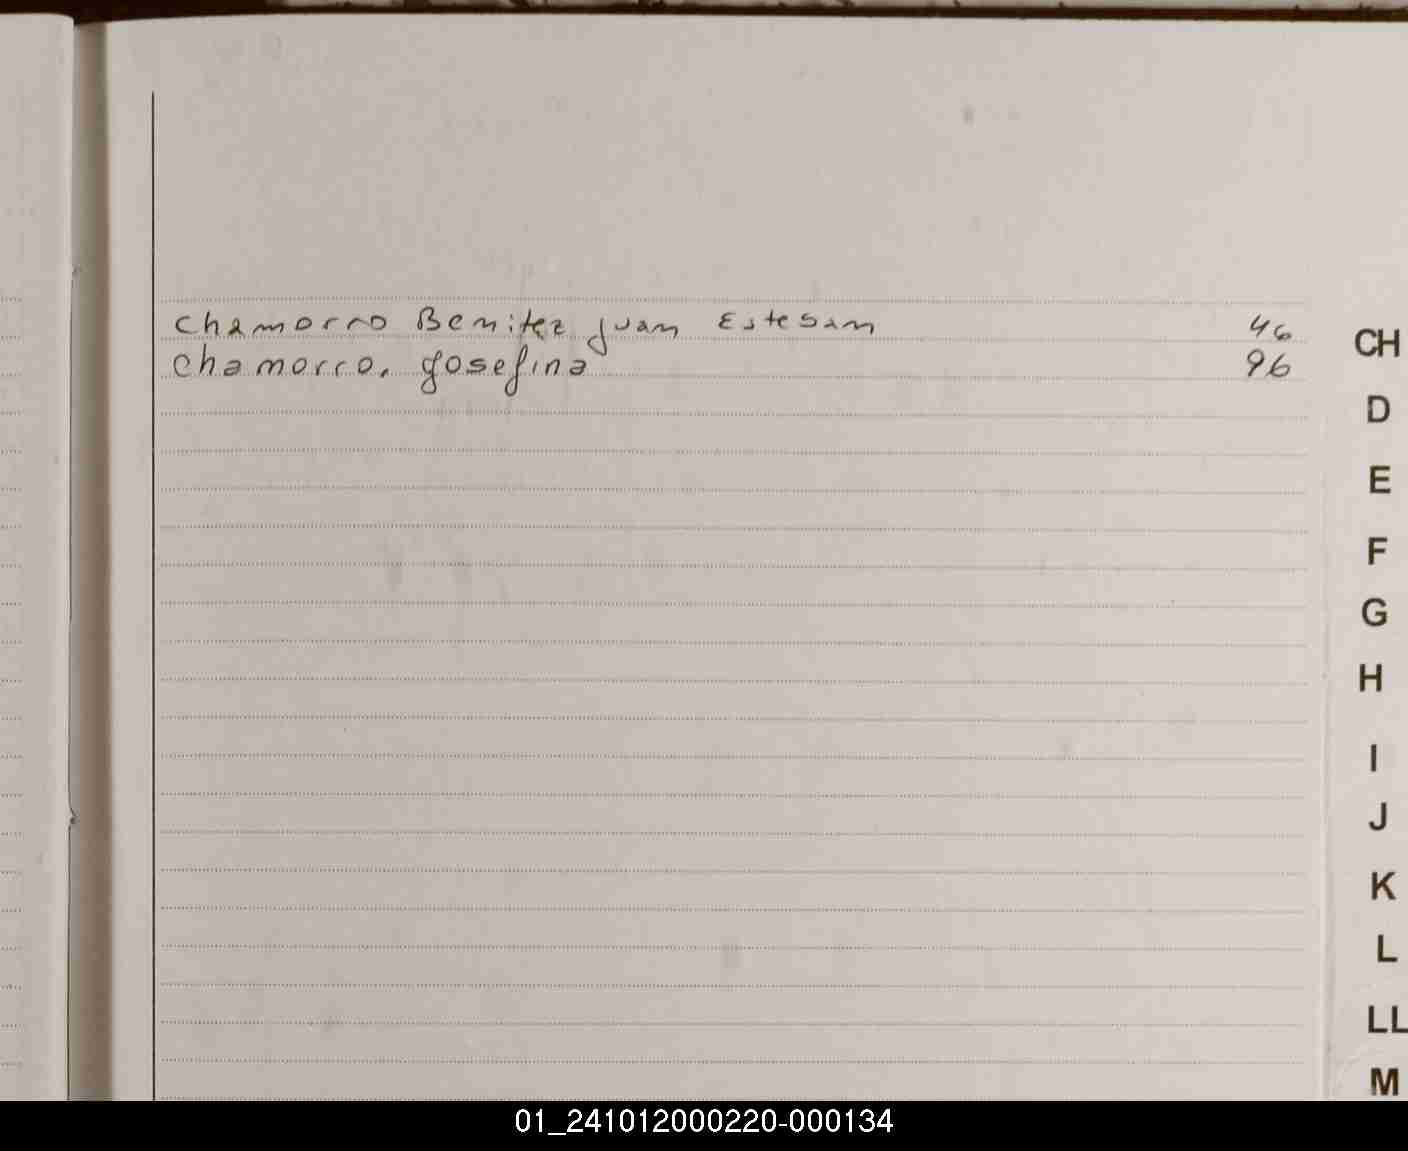 Chamorro Benitez Juan Estesan 46
Chamorro, Josefina 96
CH
D
E
F
G
H
I
J
K
L
LL
M
01_241012000220-000134